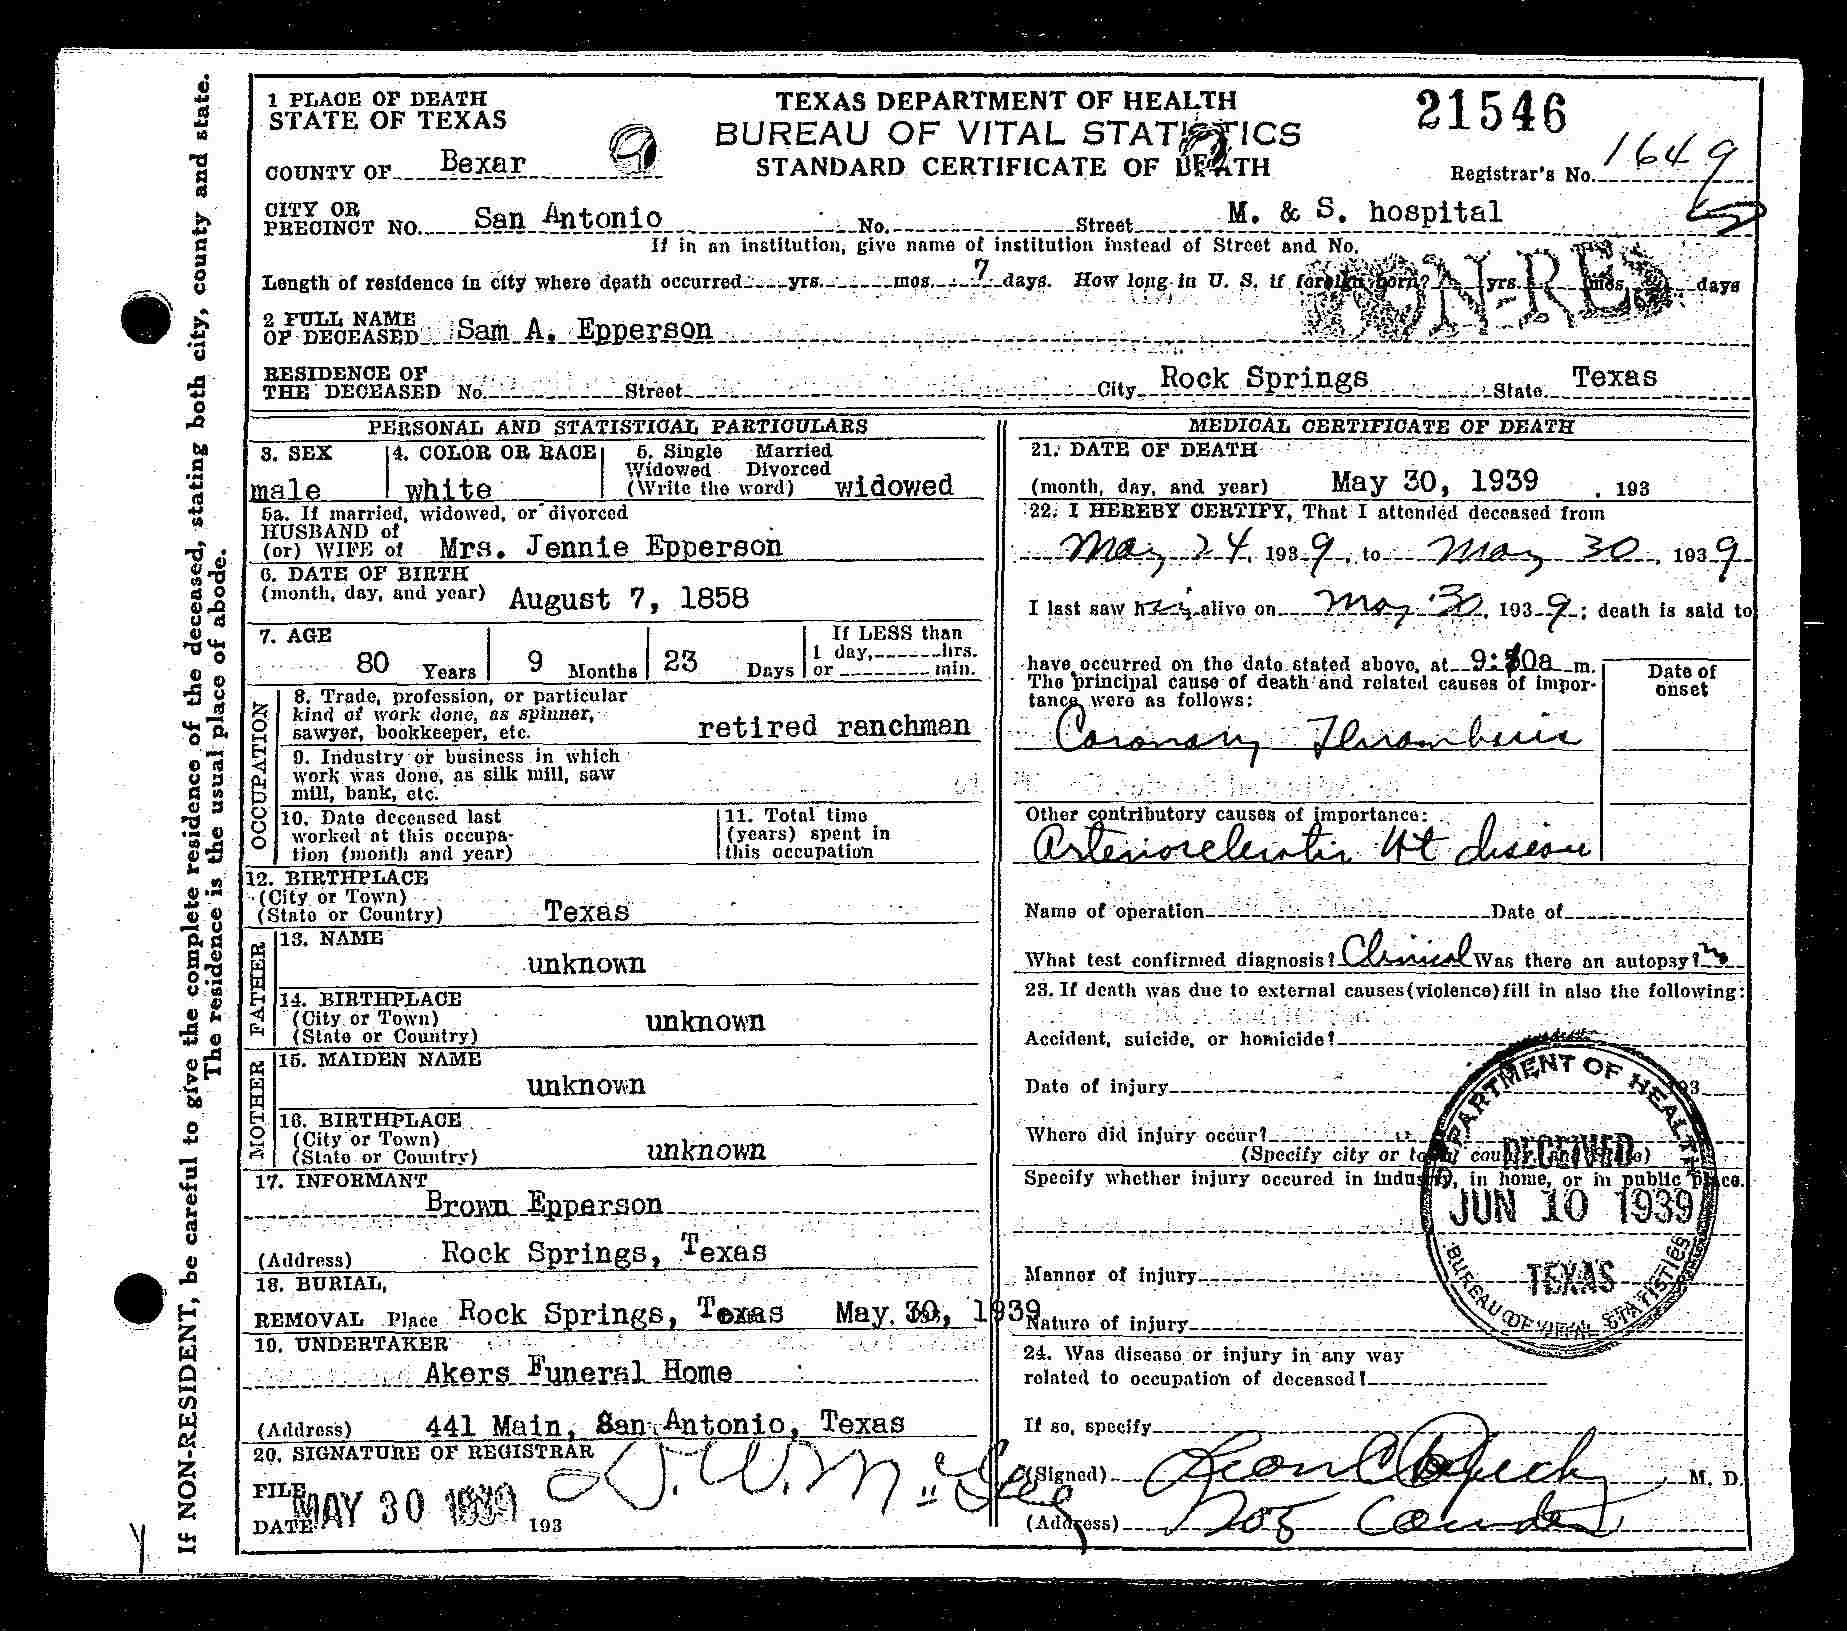 If NON-RESIDENT, be careful to give the complete residence of the deceased, stating both city, county and state.
The residence is the usual place of abode.
1 PLACE OF DEATH
STATE OF TEXAS
COUNTY OF Bexar
TEXAS DEPARTMENT OF HEALTH
BUREAU OF VITAL STATISTICS
STANDARD CERTIFICATE OF DEATH
21546
Registrar's No. 1649
CITY OR
PRECINCT NO. San Antonio No. Street M. & S. hospital
If in an institution, give name of institution instead of Street and No.
Length of residence in city where death occurred yrs. mos. 7 days. How long in U. S. if foreign born? yrs. mos. days
NON-RES
2 FULL NAME
OF DECEASED Sam A. Epperson
RESIDENCE OF
THE DECEASED No. Street City Rock Springs State Texas
PERSONAL AND STATISTICAL PARTICULARS
3. SEX
male
4. COLOR OR RACE
white
5. Single Married
Widowed Divorced
(Write the word) widowed
5a. If married, widowed, or divorced
HUSBAND of
(or) WIFE of Mrs. Jennie Epperson
6. DATE OF BIRTH
(month, day, and year) August 7, 1858
7. AGE
80 Years 9 Months 23 Days
If LESS than
1 day, hrs.
or min.
OCCUPATION
8. Trade, profession, or particular
kind of work done, as spinner,
sawyer, bookkeeper, etc. retired ranchman
9. Industry or business in which
work was done, as silk mill, saw
mill, bank, etc.
10. Date deceased last
worked at this occupa-
tion (month and year)
11. Total time
(years) spent in
this occupation
12. BIRTHPLACE
(City or Town)
(State or Country) Texas
FATHER
13. NAME
unknown
14. BIRTHPLACE
(City or Town) unknown
(State or Country)
MOTHER
15. MAIDEN NAME
unknown
16. BIRTHPLACE
(City or Town)
(State or Country) unknown
17. INFORMANT
Brown Epperson
(Address) Rock Springs, Texas
18. BURIAL,
REMOVAL Place Rock Springs, Texas May. 30, 1939
19. UNDERTAKER
Akers Funeral Home
(Address) 441 Main, San Antonio, Texas
20. SIGNATURE OF REGISTRAR
FILE
DATE MAY 30 1939 193
MEDICAL CERTIFICATE OF DEATH
21. DATE OF DEATH
(month, day, and year) May 30, 1939 , 193
22. I HEREBY CERTIFY, That I attended deceased from
May 24, 1939, to May 30, 1939
I last saw him alive on May 30, 1939; death is said to
have occurred on the date stated above, at m.
The principal cause of death and related causes of impor-
tance were as follows:
Date of
onset
Coronary Thrombosis
Other contributory causes of importance:
Arteriosclerotic Ht disease
Name of operation Date of
What test confirmed diagnosis? Clinical Was there an autopsy? no
23. If death was due to external causes (violence) fill in also the following:
Accident, suicide, or homicide?
Date of injury 193
Where did injury occur?
(Specify city or town, county and state)
Specify whether injury occured in industry, in home, or in public place.
Manner of injury
Nature of injury
24. Was disease or injury in any way
related to occupation of deceased?
If so, specify
(Signed) M. D.
(Address) 205 Camden
DEPARTMENT OF HEALTH
RECEIVED
JUN 10 1939
TEXAS
BUREAU OF VITAL STATISTICS